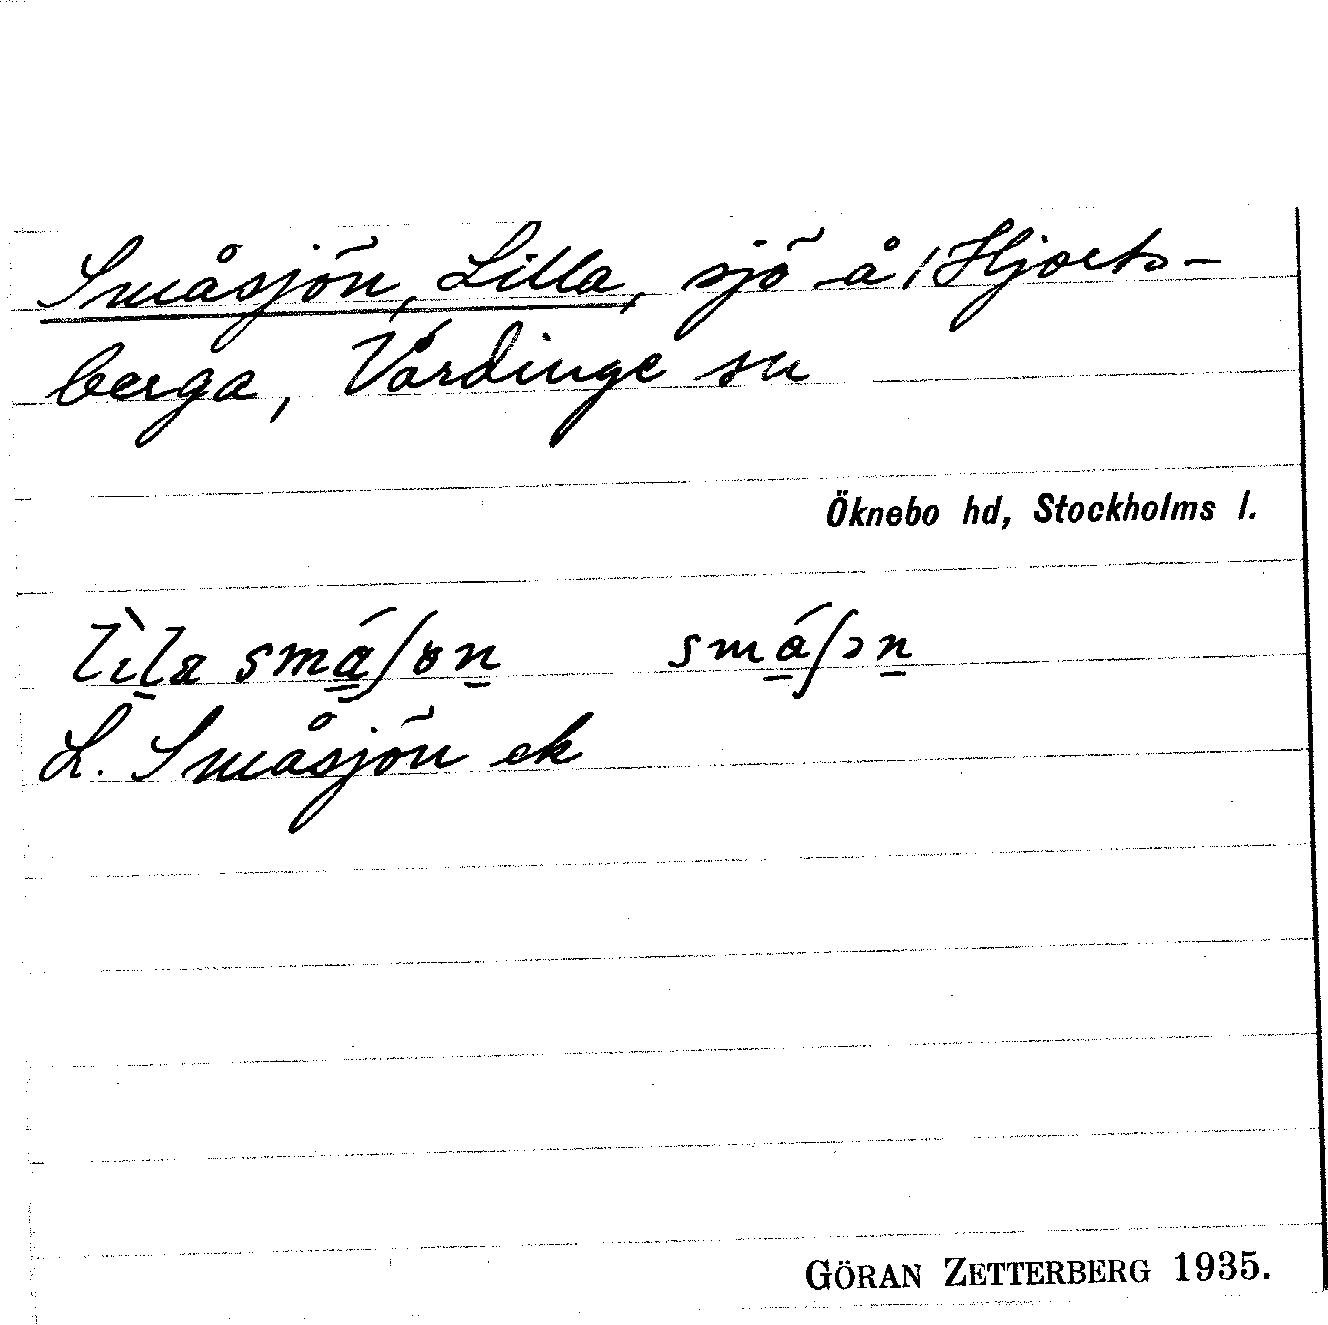 Småsjön, Lilla, sjö å /Hjorts-
berga, Vårdinge sn
Öknebo hd, Stockholms l.
lɩ̀la smǻʃɵn smǻʃɔn
L. Småsjön ek
GÖRAN ZETTERBERG 1935.